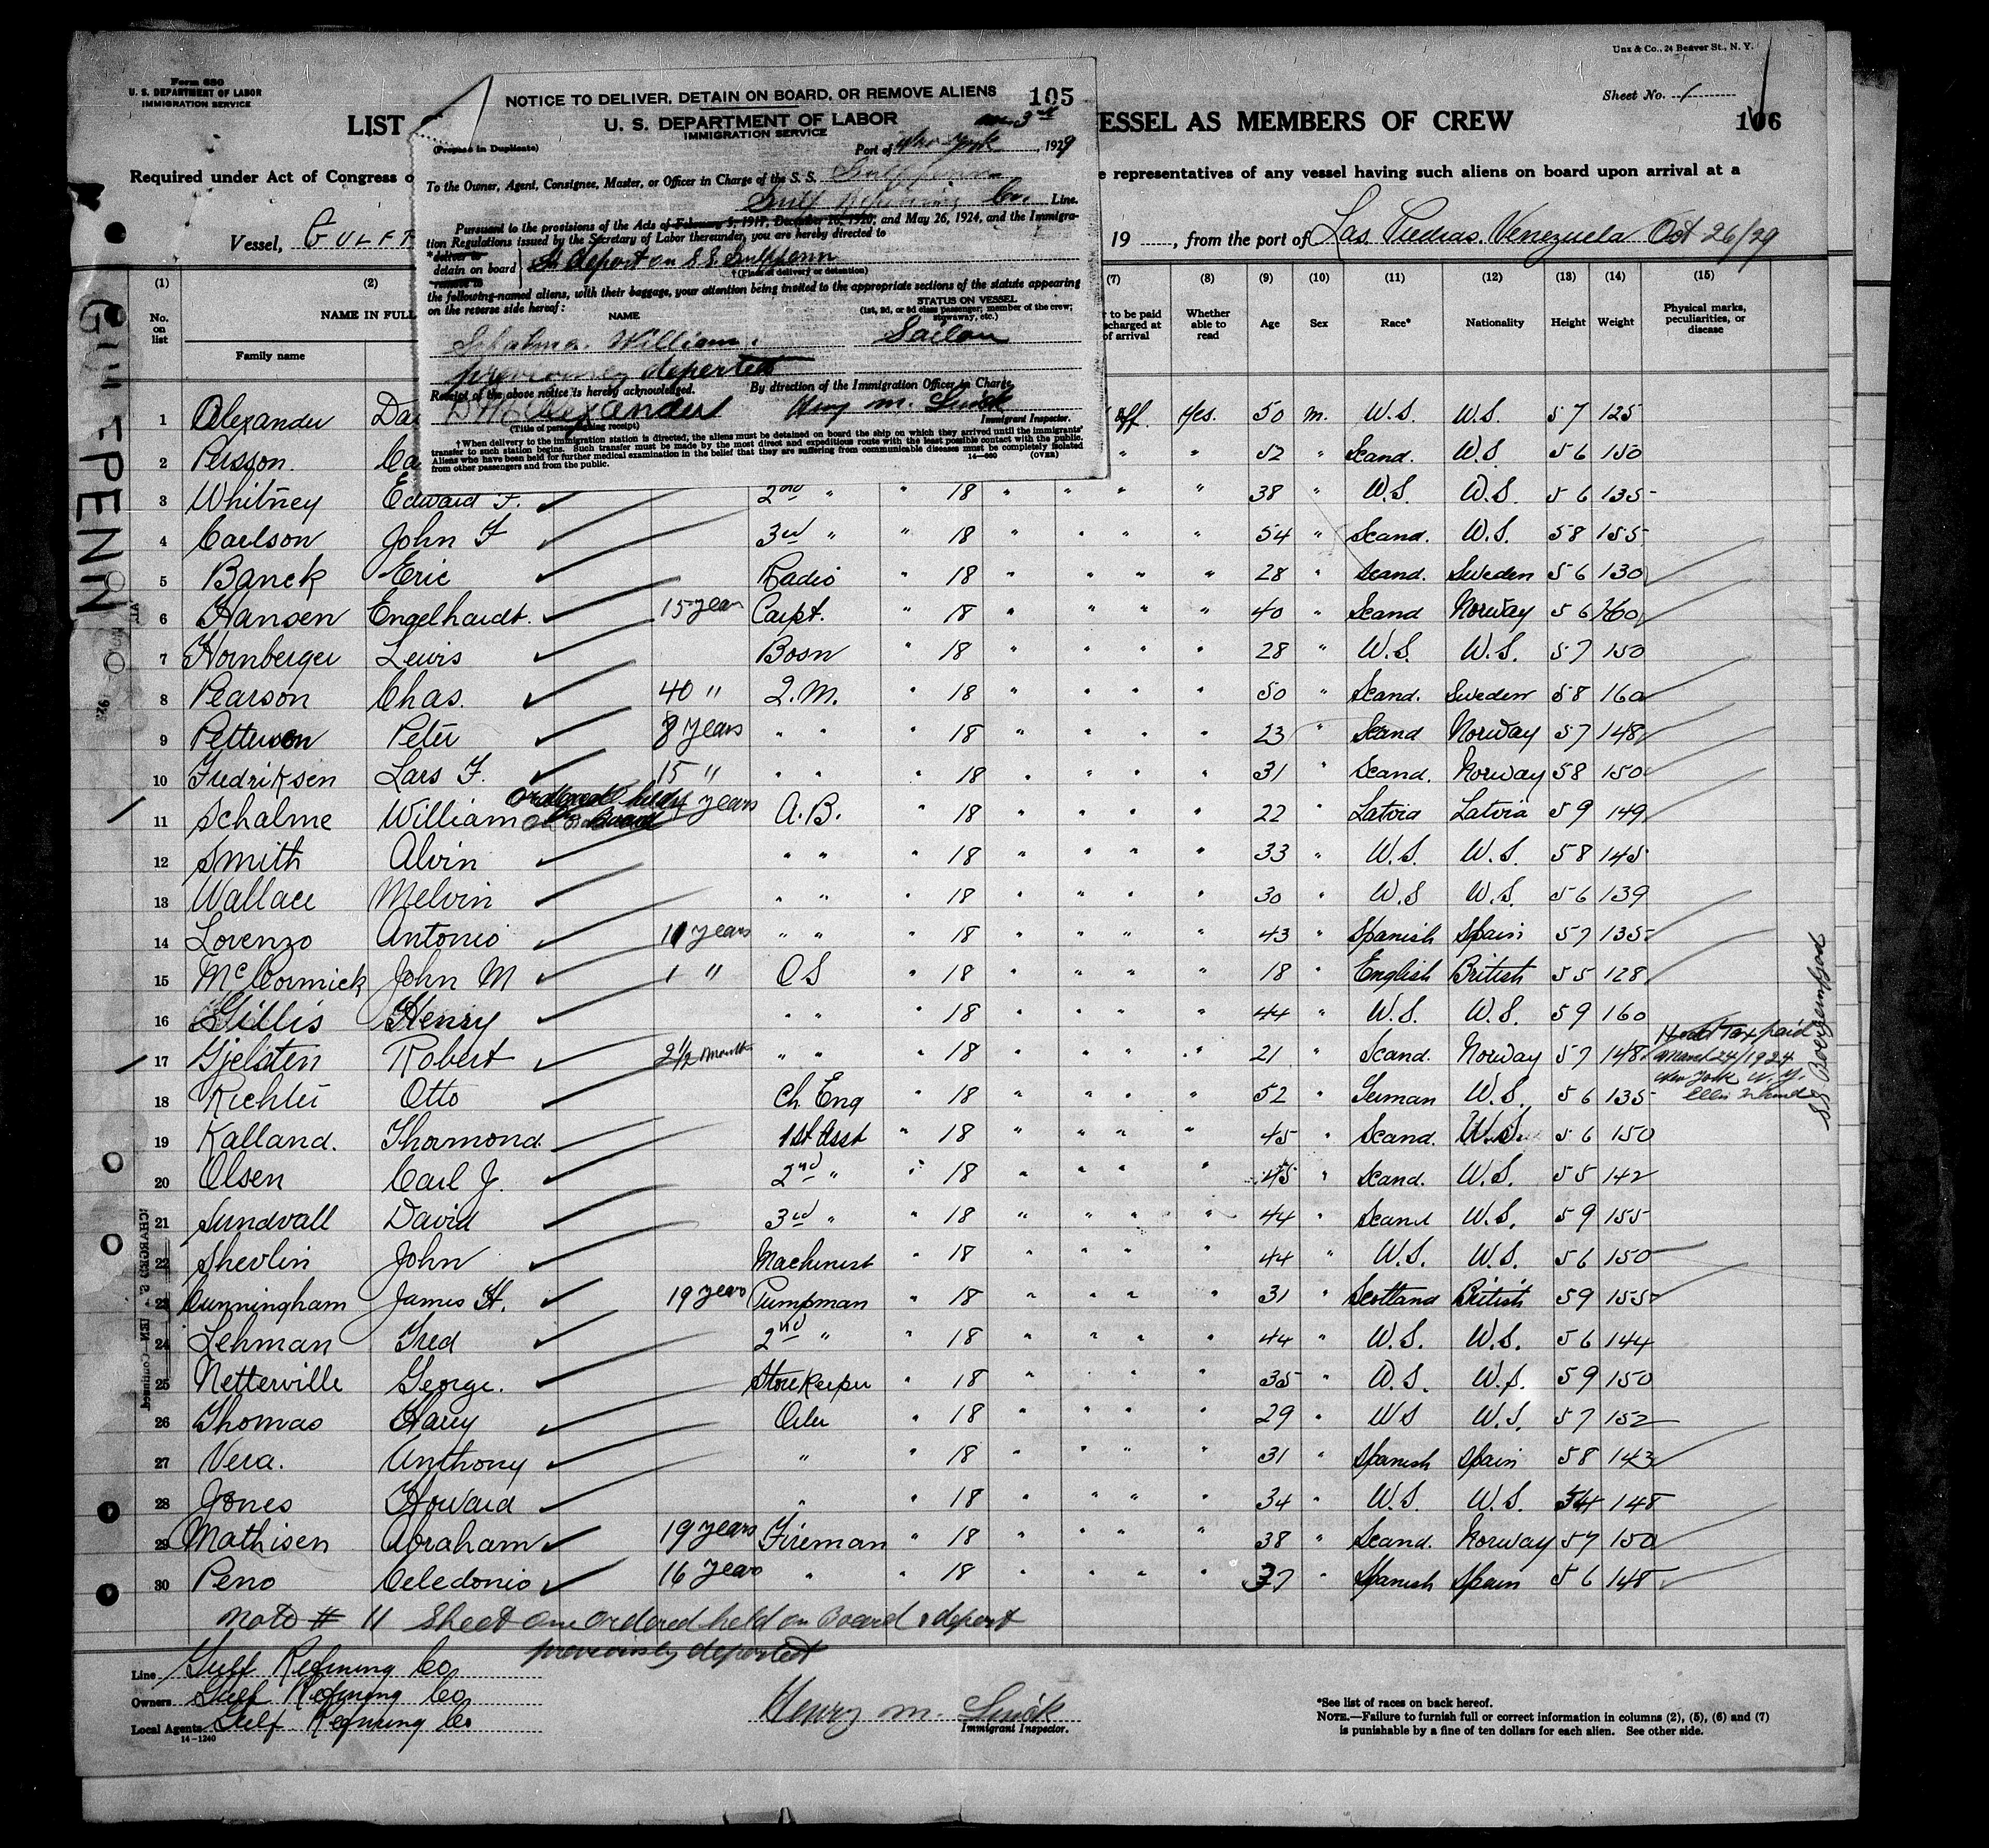 Unz & Co., 24 Beaver St., N. Y.
Form 680
U. S. DEPARTMENT OF LABOR
IMMIGRATION SERVICE
Sheet No. 1
LIST
ESSEL AS MEMBERS OF CREW
106
Required under Act of Congress o
e representatives of any vessel having such aliens on board upon arrival at a
Vessel, GULF
19 , from the port of Las Piedras Venezuela Oct 26/29
NOTICE TO DELIVER, DETAIN ON BOARD, OR REMOVE ALIENS 105
U. S. DEPARTMENT OF LABOR
IMMIGRATION SERVICE
(Prepare in Duplicate)
Port of New York , 1929
To the Owner, Agent, Consignee, Master, or Officer in Charge of the S. S. Gulfpenn
Gulf Refining Co. Line.
Pursuant to the provisions of the Acts of February 5, 1917, December 26, 1920, and May 26, 1924, and the Immigra-
tion Regulations issued by the Secretary of Labor thereunder, you are hereby directed to
*deliver to
detain on board & deport on SS. Gulfpenn
remove to
†(Place of delivery or detention)
the following-named aliens, with their baggage, your attention being invited to the appropriate sections of the statute appearing
on the reverse side hereof:
NAME
STATUS ON VESSEL
(1st, 2d, or 3d class passenger; member of the crew; stowaway, etc.)
Schalme William. Sailor
previously deported
Receipt of the above notice is hereby acknowledged. By direction of the Immigration Officer in Charge,
Alexander Henry M. Immigrant Inspector.
(Title of person signing receipt)
†When delivery to the immigration station is directed, the aliens must be detained on board the ship on which they arrived until the immigrants'
transfer to such station begins. Such transfer must be made by the most direct and expeditious route with the least possible contact with the public.
Aliens who have been held for further medical examination in the belief that they are suffering from communicable diseases must be completely isolated
from other passengers and from the public. 14—660 (OVER)
(1) (2) (7) (8) (9) (10) (11) (12) (13) (14) (15)
No. on list
NAME IN FULL
Family name
to be paid
scharged at
of arrival
Whether able to read
Age Sex Race* Nationality Height Weight
Physical marks, peculiarities, or disease
1 Alexander Da off. Yes. 50 m. U.S U.S. 5 7 125
2 Persson. Ca " " 52 " Scand. U.S 5 6 150
3 Whitney Edward F. 2nd " " 18 " " " " 38 " U.S. U.S. 5 6 135
4 Carlson John F 3rd " " 18 " " " " 54 " Scand. U.S. 5 8 155
5 Banck Eric Radio " 18 " " " " 28 " Scand. Sweden 5 6 130
6 Hansen Engelhardt. 15 year Carpt. " 18 " " " " 40 " Scand Norway 5 6 160
7 Hornberger Lewis Bosn " 18 " " " " 28 " U.S. U.S. 5 7 150
8 Pearson Chas. 40 " Q.M. " 18 " " " " 50 " Scand. Sweden 5 8 160
9 Petterson Peter 8 years " " " 18 " " " " 23 " Scand Norway 5 7 148
10 Fredriksen Lars F. 15 " " " " 18 " " " " 31 " Scand. Norway 5 8 150
ordered held
on Board
11 Schalme William years A.B. " 18 " " " " 22 " Latvia Latvia 5 9 149
12 Smith Alvin " " " 18 " " " " 33 " U.S. U.S. 5 8 145
13 Wallace Melvin " " " 18 " " " " 30 " U.S U.S. 5 6 139
14 Lorenzo Antonio 11 years " " " 18 " " " " 43 " Spanish Spain 5 7 135
15 McCormick John M 1 " OS " 18 " " " " 18 " English British 5 5 128
16 Gillis Henry " " " 18 " " " " 44 " U.S. U.S. 5 9 160
17 Gjelsten Robert 2 1/2 months " " " 18 " " " " 21 " Scand. Norway 5 7 148
Head Tax paid
March 24/1924
New York N.Y.
Ellis Island
18 Richter Otto Ch. Eng " 18 " " " " 52 " German U.S. 5 6 135
19 Kalland. Thormond. 1st Asst " 18 " " " " 45 " Scand. U.S. 5 6 150
20 Olsen Carl J. 2nd " " 18 " " " " 45 " Scand. U.S. 5 5 142
21 Sundvall David 3rd " " 18 " " " " 44 " Scand U.S. 5 9 155
22 Shevlin John Machinist " 18 " " " " 44 " U.S. U.S. 5 6 150
23 Cunningham James H. 19 years Pumpman " 18 " " " " 31 " Scotland British 5 9 155
24 Lehman Fred 2nd " " 18 " " " " 44 " U.S. U.S. 5 6 144
25 Netterville George. Storekeeper " 18 " " " " 35 " U.S. U.S. 5 9 150
26 Thomas Harry Oiler " 18 " " " " 29 " US U.S. 5 7 152
27 Vera. Anthony " " 18 " " " " 31 " Spanish Spain 5 8 143
28 Jones Howard " " 18 " " " " 34 " U.S. U.S. 5 4 148
29 Mathisen Abraham 19 years Fireman " 18 " " " " 38 " Scand. Norway 5 7 150
30 Peno Celedonio 16 years " " 18 " " " " 37 " Spanish Spain 5 6 148
Note # 11 Sheet one ordered held on Board & deport
previously deported
Line Gulf Refining Co.
Owners Gulf Refining Co
Local Agents Gulf Refining Co
14-1240
Henry M.
Immigrant Inspector.
*See list of races on back hereof.
NOTE.—Failure to furnish full or correct information in columns (2), (5), (6) and (7)
is punishable by a fine of ten dollars for each alien. See other side.
GULFPENN